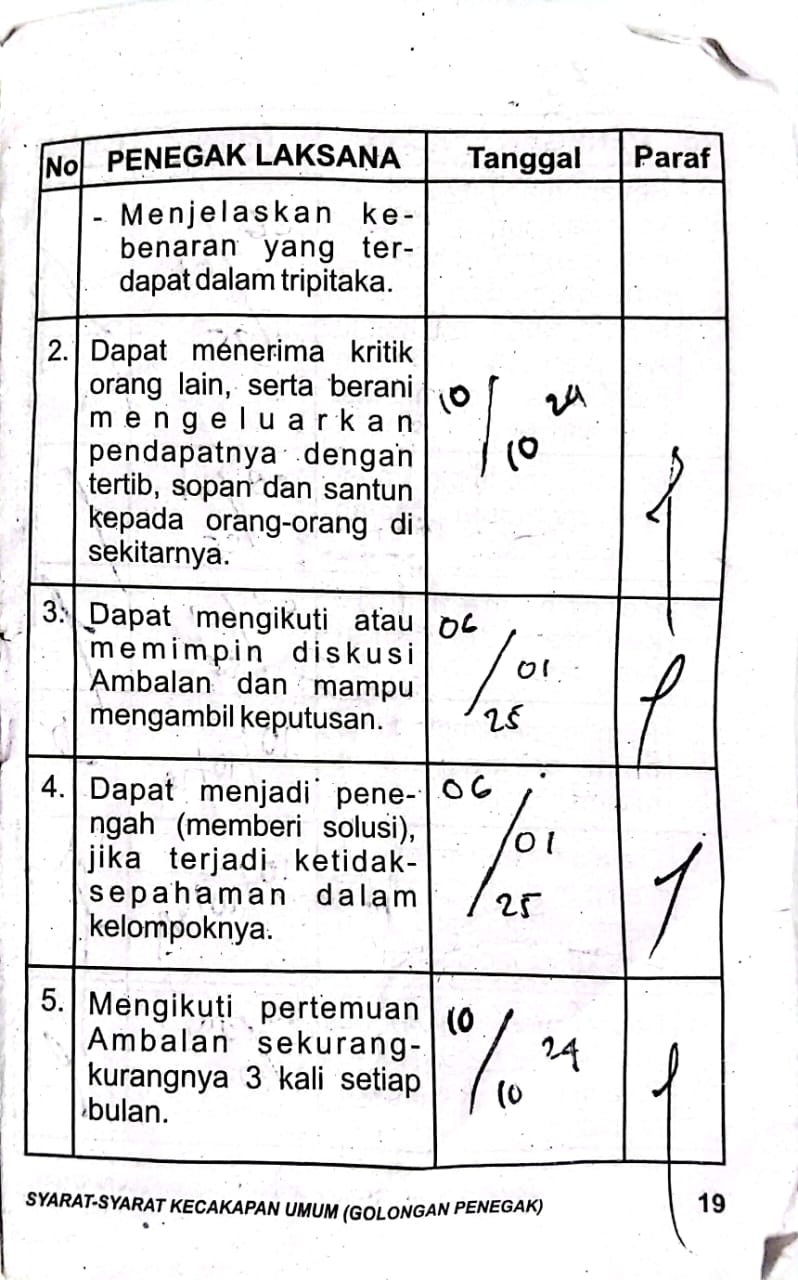 No PENEGAK LAKSANA Tanggal Paraf
- Menjelaskan ke-
benaran yang ter-
dapat dalam tripitaka.
2. Dapat menerima kritik
orang lain, serta berani
mengeluarkan
pendapatnya dengan
tertib, sopan dan santun
kepada orang-orang di
sekitarnya.
10/10 24
3. Dapat mengikuti atau
memimpin diskusi
Ambalan dan mampu
mengambil keputusan.
06/01
25
4. Dapat menjadi pene-
ngah (memberi solusi),
jika terjadi ketidak-
sepahaman dalam
kelompoknya.
06/01
25
5. Mengikuti pertemuan
Ambalan sekurang-
kurangnya 3 kali setiap
bulan.
10/10 24
SYARAT-SYARAT KECAKAPAN UMUM (GOLONGAN PENEGAK) 19